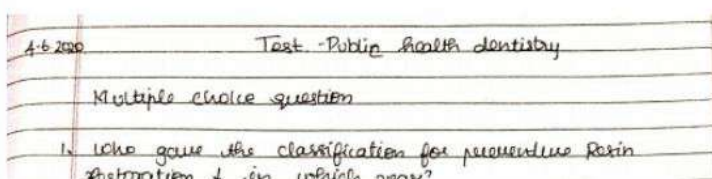 4-6-2020 Test - Public health dentistry
Multiple choice question
1. who gave the classification for preventive Resin
Restoration & in which year?